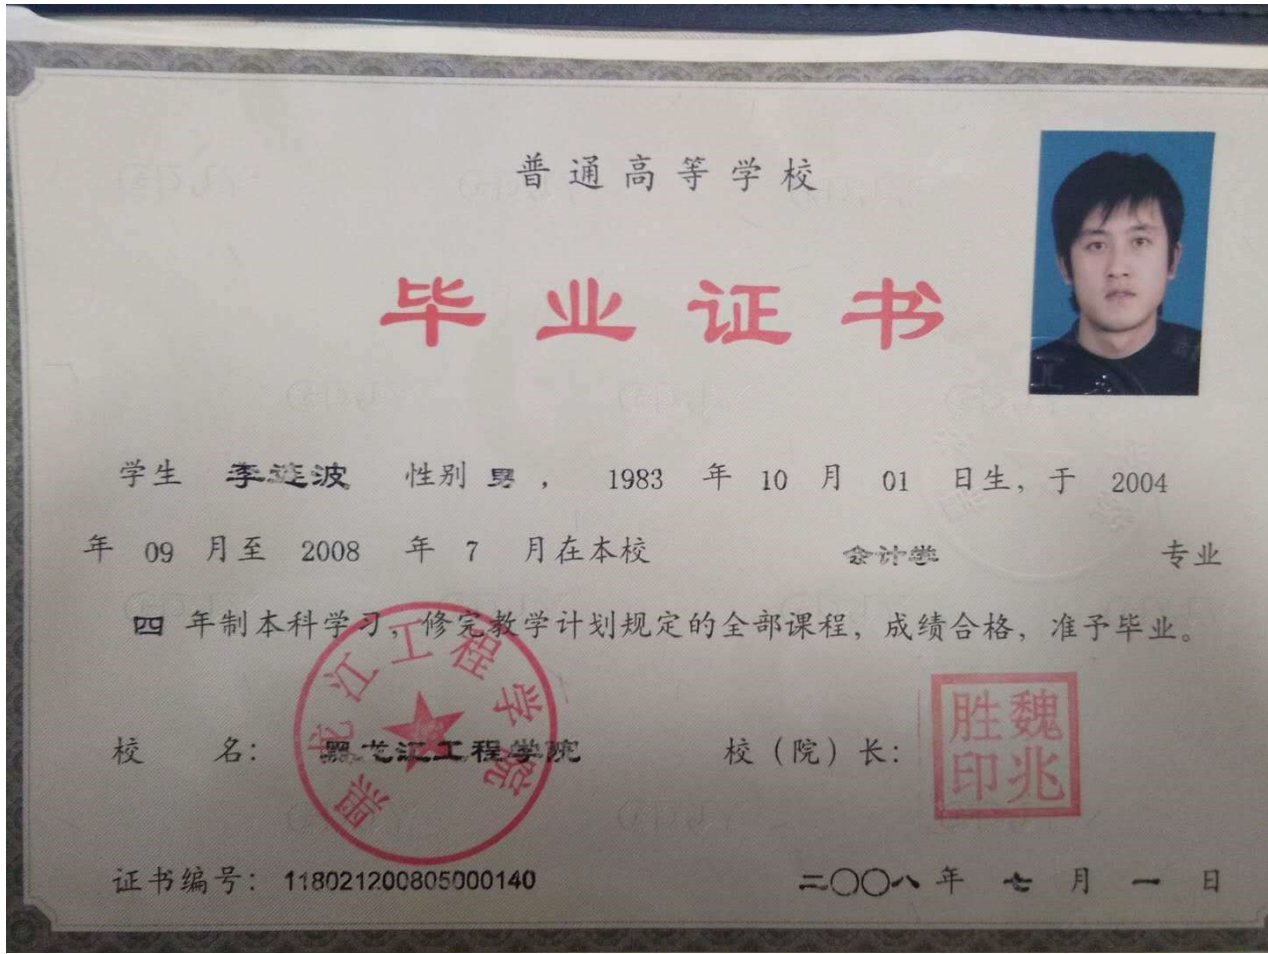 普通高等学校
毕业证书
学生 李连波 性别 男， 1983 年 10 月 01 日生，于 2004
年 09 月至 2008 年 7 月在本校 会计学 专业
四 年制本科学习，修完教学计划规定的全部课程，成绩合格，准予毕业。
校 名： 黑龙江工程学院 校（院）长：
黑龙江工程学院
魏兆
胜印
证书编号：118021200805000140 二〇〇八 年 七 月 一 日